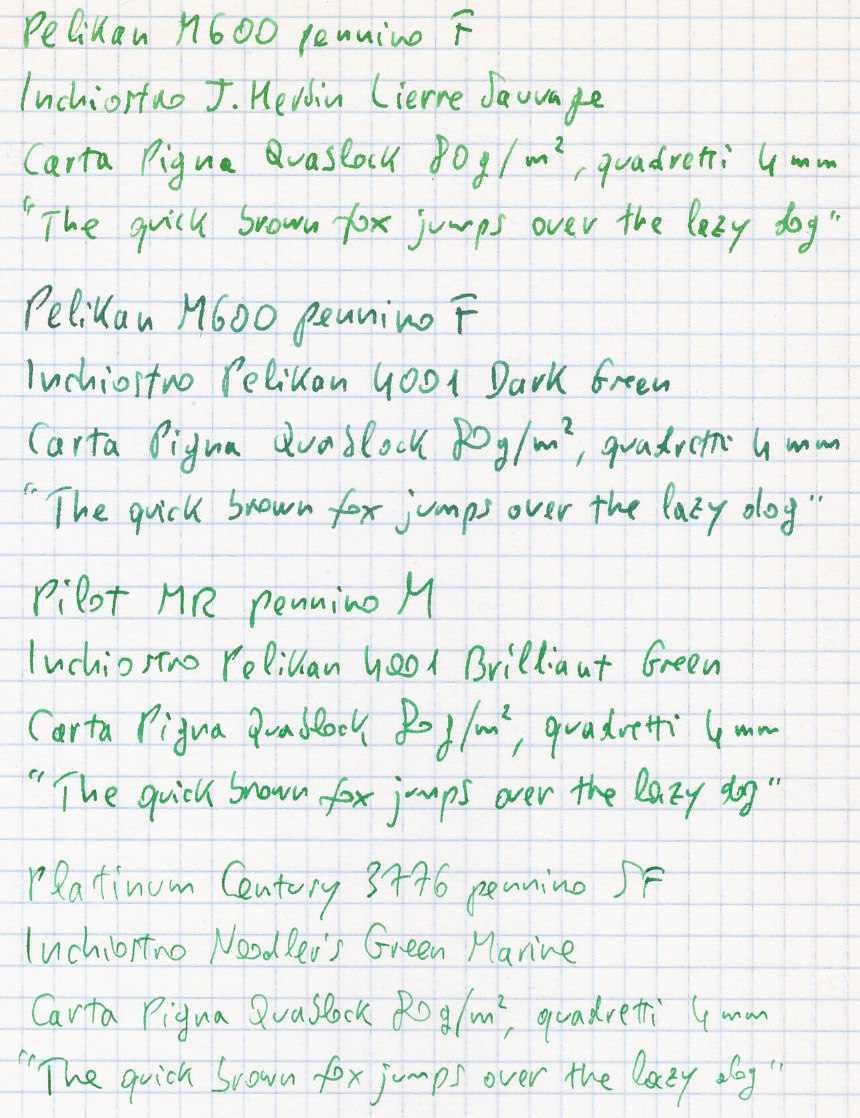 Pelikan M600 pennino F
Inchiostro J. Herbin Lierre Sauvage
Carta Pigna Quablock 80g/m², quadretti 4 mm
"The quick brown fox jumps over the lazy dog"
Pelikan M600 pennino F
Inchiostro Pelikan 4001 Dark Green
Carta Pigna Quablock 80g/m², quadretti 4 mm
"The quick brown fox jumps over the lazy dog"
Pilot MR pennino M
Inchiostro Pelikan 4001 Brilliant Green
Carta Pigna Quablock 80g/m², quadretti 4 mm
"The quick brown fox jumps over the lazy dog"
Platinum Century 3776 pennino SF
Inchiostro Noodler's Green Marine
Carta Pigna Quablock 80g/m², quadretti 4 mm
"The quick brown fox jumps over the lazy dog"